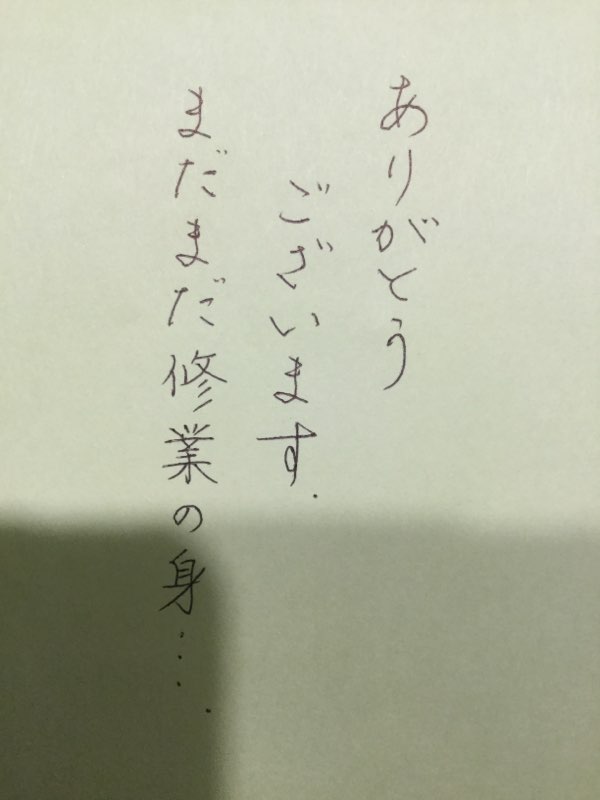 ありがとう
ございます.
まだまだ修業の身….